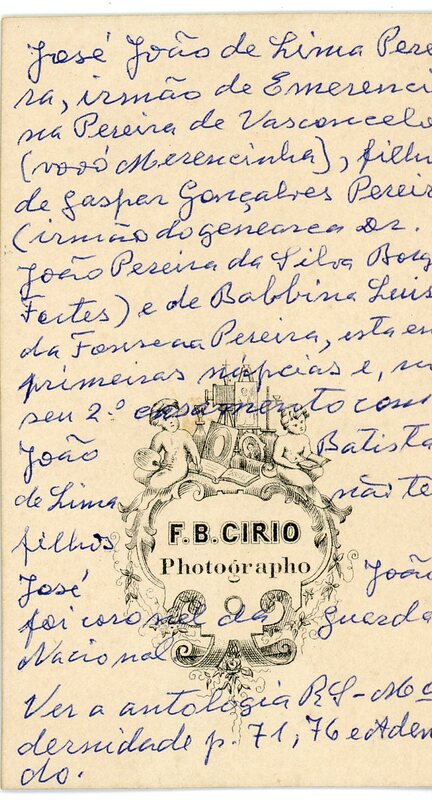 José João de Lima Pere
ra, irmão de Emerenci
na Pereira de Vasconcelo
(vovó Merencinha), filho
de Gaspar Gonçalves Pereir
(irmão do genearca Dr.
João Pereira da Silva Borg
Fortes) e de Balbina Luis
da Fonseca Pereira, esta em
primeiras núpcias e, no
seu 2.º casamento com
João Batista
de Lima não te
filhos
F. B. CIRIO
Photographo
José João
foi coronel da Guarda
Nacional
Ver a antologia RS-Mo
dernidade p. 71, 76 e Aden
do.